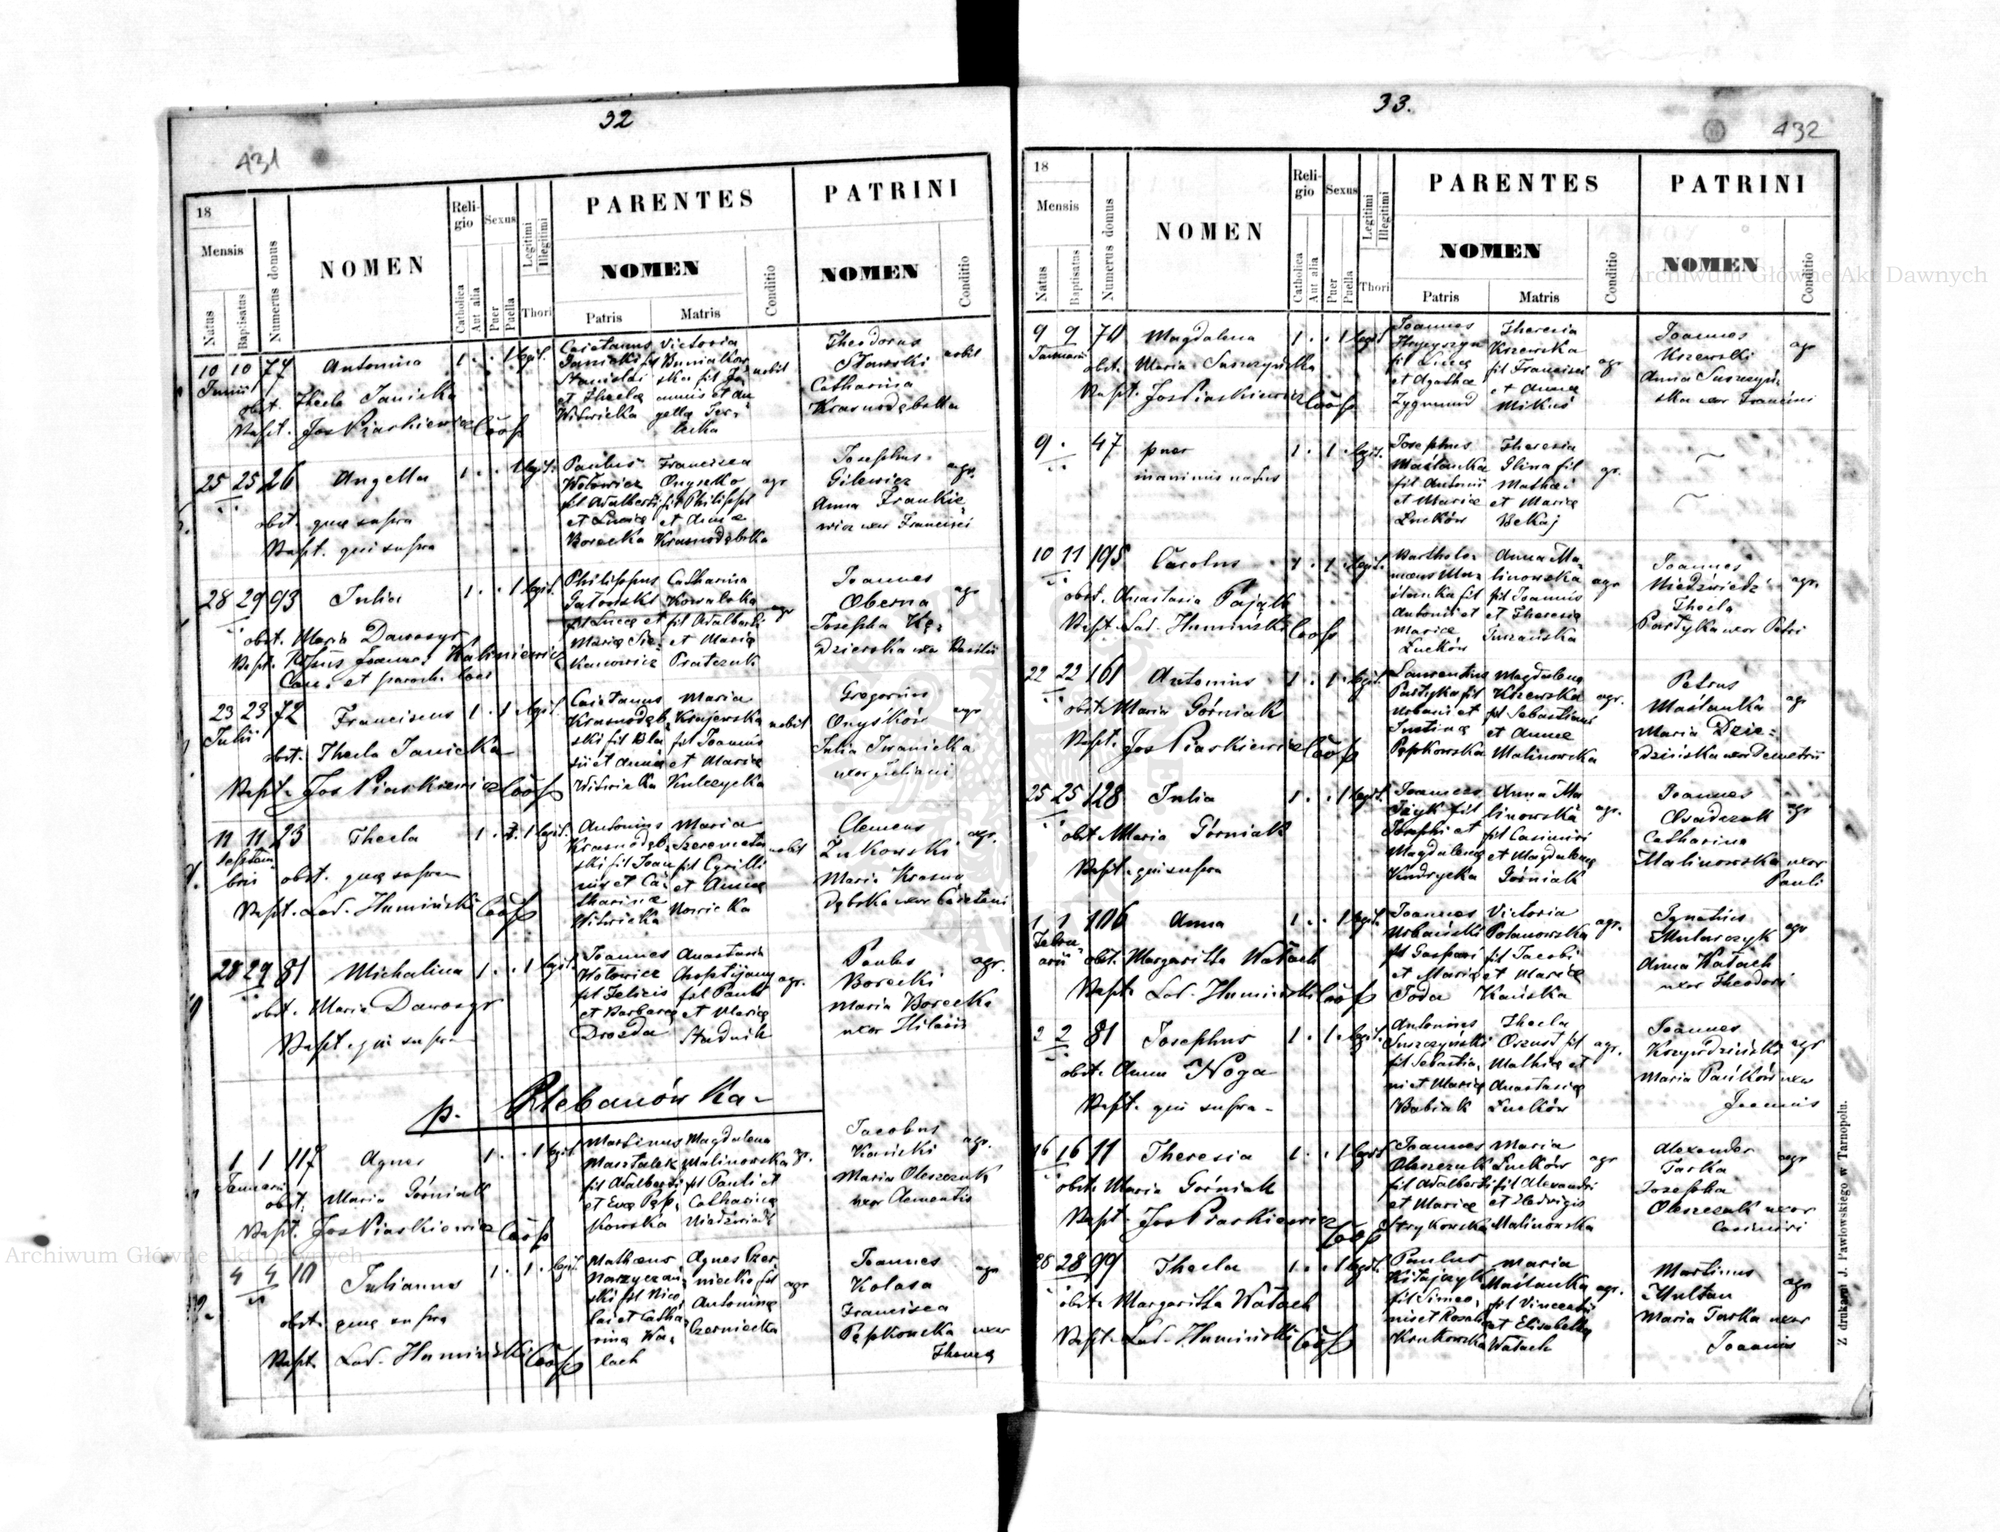 32
431
18
Mensis
Natus
Baptisatus
Numerus domus
NOMEN
Religio
Catholica
Aut alia
Sexus
Puer
Puella
Legitimi
Illegitimi
Thori
PARENTES
NOMEN
Patris
Matris
Conditio
PATRINI
NOMEN
Conditio
10 10 77 Antonina 1 . . 1 legit.
Junii
obst. Thecla Janicka
Bapt. Jos Piaskiewicz Coop
Caietanus
Janicki fil
Stanislai
et Theclae
Witwicka
Victoria
nobil
Theodorus
Slawski
Catharina
Krasnodębska
nobil
25 25 26 Angella 1 . . 1 legit.
obst. quae supra
Bapt. qui supra
Paulus
Wołowicz
fil Adalberti
et Luciae
Borecka
Francisca
Onyszko
fil Philippi
et Annae
Krasnodębska
agr
Josephus
Gilewicz
Anna Frankie
wicz uxor Francisci
agr.
28 29 93 Julia 1 . . 1 legit.
obst. Maria Dawosyr
Bapt. Kaliniewicz
Can. et paroch. loci
Philippus
Gutowski
fil Lucae et
Mariae
Catharina
Kowalska
fil Adalberti
et Mariae
Pratczuk
agr
Joannes
Oberna
Josepha Kę-
dzierska uxor Basilii
agr
23 23 72 Franciscus 1 . 1 . legit.
Julii
obst. Thecla Janicka
Bapt. Jos Piaskiewicz Coop
Caietanus
Krasnodęb
ski fil Bla
sii et Annae
Witwicka
Maria
fil Joannis
et Mariae
Kulczycka
nobil
Gregorius
Onyśków
Julia Iwanicka
uxor Juliani
agr
11 11 23 Thecla 1 . . 1 legit.
Septem
bris
obst. quae supra
Bapt. Lad. Humiński Coop
Antonius
Krasnodęb
ski fil Joan
nis et Ca
tharinae
Witwicka
Maria
Szeremeta
fil Cyrilli
et Annae
Nowicka
nobil
Clemens
Żukowski
Maria Krasno
dębska uxor Caietani
agr.
28 29 81 Michalina 1 . . 1 legit.
obst. Maria Dawosyr
Bapt. qui supra
Joannes
Wołowicz
fil Felicis
et Barbarae
Drozda
Anastasia
fil Pauli
et Mariae
Stadnik
agr.
Paulus
Borecki
Maria Borecka
uxor Hilarii
agr.
p. Plebanówka
1 1 117 Agnes 1 . . 1 legit
Januarii
obst. Maria Górniak
Bapt. Jos Piaskiewicz Coop
Martinus
Masztalek
fil Adalberti
et Evae Pęp
kowska
Magdalena
Malinowska
fil Pauli et
Catharinae
Niedźwiedź
agr.
Jacobus
Kański
Maria Oleszczuk
uxor Clementis
agr.
4 4 10 Julianus 1 . 1 . legit.
obst. quae supra
Bapt. Lad. Humiński Coop
Mathaeus
Narzyczań
ski fil Nico
lai et Catha
rinae Wa
lach
Agnes Czer
niecka fil
Antoninae
Czerniecka
agr
Joannes
Kolasa
Francisca
Pępkowska uxor
Thomae
agr
33.
432
18
Mensis
Natus
Baptisatus
Numerus domus
NOMEN
Religio
Catholica
Aut alia
Sexus
Puer
Puella
Legitimi
Illegitimi
Thori
PARENTES
NOMEN
Patris
Matris
Conditio
PATRINI
NOMEN
Conditio
9 9 70 Magdalena 1 . . 1 legit
Januarii
obst. Maria Suszczyńska
Bapt. Jos Piaskiewicz Coop
Joannes
fil Lucae
et Agathae
Zygmund
Theresia
Krzewska
fil Francisci
et Annae
Mikuś
agr
Joannes
Krzewski
Anna Suszczyń
ska uxor Francisci
agr
9 . 47 puer 1 . 1 . legit.
inanimis natus
Josephus
Maślanka
fil Antonii
et Mariae
Lućków
Theresia
Glina fil
Mathaei
et Mariae
Bekaj
agr.
10 11 195 Carolus 1 . 1 . legit.
obst. Anastasia Pająk
Bapt. Lad. Humiński Coop
Bartholo-
maeus Ma-
ślanka fil
Antonii et
Mariae
Lućków
Anna Ma-
linowska
fil Joannis
et Theresiae
agr
Joannes
Niedźwiedź
Thecla
Partyka uxor Petri
agr.
22 22 161 Antonius 1 . 1 . legit.
obst. Maria Górniak
Bapt. Jos Piaskiewicz Coop
Laurentius
Partyka fil
Urbani et
Justinae
Pępkowska
Magdalena
Krzewska
fil Sebastiani
et Annae
Malinowska
agr.
Petrus
Maślanka
Maria Dzie-
dzińska uxor Demetrii
agr
25 25 128 Julia 1 . . 1 legit.
obst. Maria Górniak
Bapt. qui supra
Joannes
fil
Josephi et
Magdalenae
Kudrycka
Anna Ma
linowska
fil Casimiri
et Magdalenae
Górniak
agr.
Joannes
Osadczuk
Catharina
Malinowska uxor
Pauli
agr
1 1 106 Anna 1 . . 1 legit.
Febru-
arii
obst. Margaritta Wałach
Bapt. Lad. Humiński Coop
Joannes
Urbański
fil Gaspari
et Mariae
Toda
Victoria
Polanowska
fil Jacobi
et Mariae
Kańska
agr.
Ignatius
Mularczyk
Anna Wałach
uxor Theodori
agr
2 2 81 Josephus 1 . 1 . legit.
obst. Anna Noga
Bapt. qui supra
Antonius
Suszczyński
fil Sebastia-
ni et Mariae
Babiak
Thecla
Oszust fil
Mathiae et
Anastasiae
Lućków
agr.
Joannes
Krzywdziński
Maria Pańków uxor
Joannis
agr
16 16 11 Theresia 1 . . 1 legit
obst. Maria Górniak
Bapt. Jos Piaskiewicz Coop
Joannes
Oleszczuk
fil Adalberti
et Mariae
Strykowska
Maria
Lućków
fil Alexandri
et Hedvigis
Malinowska
agr
Alexander
Tarka
Josepha
Oleszczuk uxor
Casimiri
agr
28 28 99 Thecla 1 . . 1 legit.
obst. Margaritta Wałach
Bapt. Lad. Humiński Coop
Paulus
Kitajczyk
fil Simeo-
nis et Rosaliae
Krukowska
Maria
Maślanka
fil Vincentii
et Elisabethae
Wałach
agr.
Martinus
Multan
Maria Tarka uxor
Joannis
agr
Z drukarni J. Pawłowskiego w Tarnopolu.
Archiwum Główne Akt Dawnych
Archiwum Główne Akt Dawnych